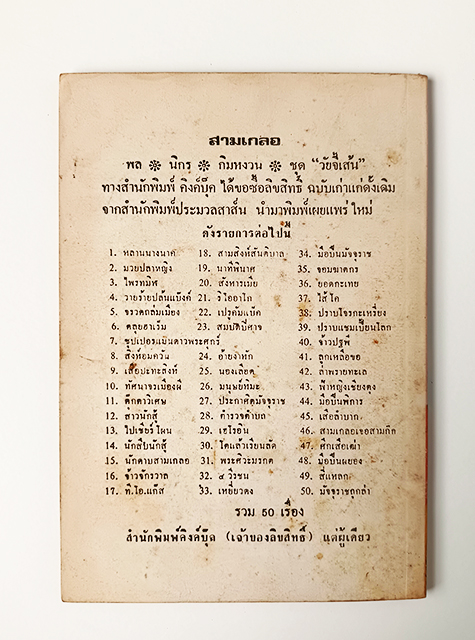 สามเกลอ
พล ❊ นิกร ❊ กิมหงวน ❊ ชุด “วัยจี้เส้น”
ทางสำนักพิมพ์ คิงค์บุ๊ค ได้ขอซื้อลิขสิทธิ์ ฉบับเก่าแก่ดั้งเดิม
จากสำนักพิมพ์ประมวลสาส์น นำมาพิมพ์เผยแพร่ใหม่
ดังรายการต่อไปนี้
1. หลานนางนาค
2. มวยปลาหญิง
3. ไพรทมิฬ
4. วายร้ายปล้นแบ๊งค์
5. จรวดถล่มเมือง
6. ตลุยฮาเร็ม
7. ซุปเปอร์แม็นดาวพระศุกร์
8. สิงห์อมควัน
9. เสือปะทะสิงห์
10. ทัศนาจรเมืองผี
11. ตุ๊กตาวิเศษ
12. สาวนักสู้
13. ไปเชียร์โผน
14. นักสืบนักสู้
15. นักดาบสามเกลอ
16. จ้าวจักรวาล
17. ที.ไอ.แก๊ส
18. สามสิงห์สันติบาล
19. นาทีพินาศ
20. สังหารเมีย
21. ริโออาโก
22. เปรูคัมแบ็ค
23. สมบัติปีศาจ
24. อ้ายงาหัก
25. นองเลือด
26. มนุษย์หิมะ
27. ประกาศิตมัจจุราช
28. ตำรวจตำบล
29. เฮโรอีน
30. โคแล้วเรียนลัด
31. พระศิวะมรกต
32. ๔ วีรชน
33. เหยี่ยวดง
34. มือปืนมัจจุราช
35. จอมฆาตกร
36. ยอดกะเทย
37. ไส้โค
38. ปราบโจรกะเหรี่ยง
39. ปราบแชมเปี้ยนโลก
40. จ้าวปฐพี
41. ลูกเหลือขอ
42. ลำพรายทะเล
43. ฟ้าหญิงเชียงตุง
44. มือปืนพิการ
45. เสือลำบาก
46. สามเกลอเจอสามกิ๊ก
47. ศึกเสือเฒ่า
48. มือปืนผยอง
49. สี่แหลก
50. มัจจุราชถูกล่า
รวม 50 เรื่อง
สำนักพิมพ์คิงค์บุ๊ค (เจ้าของลิขสิทธิ์) แต่ผู้เดียว